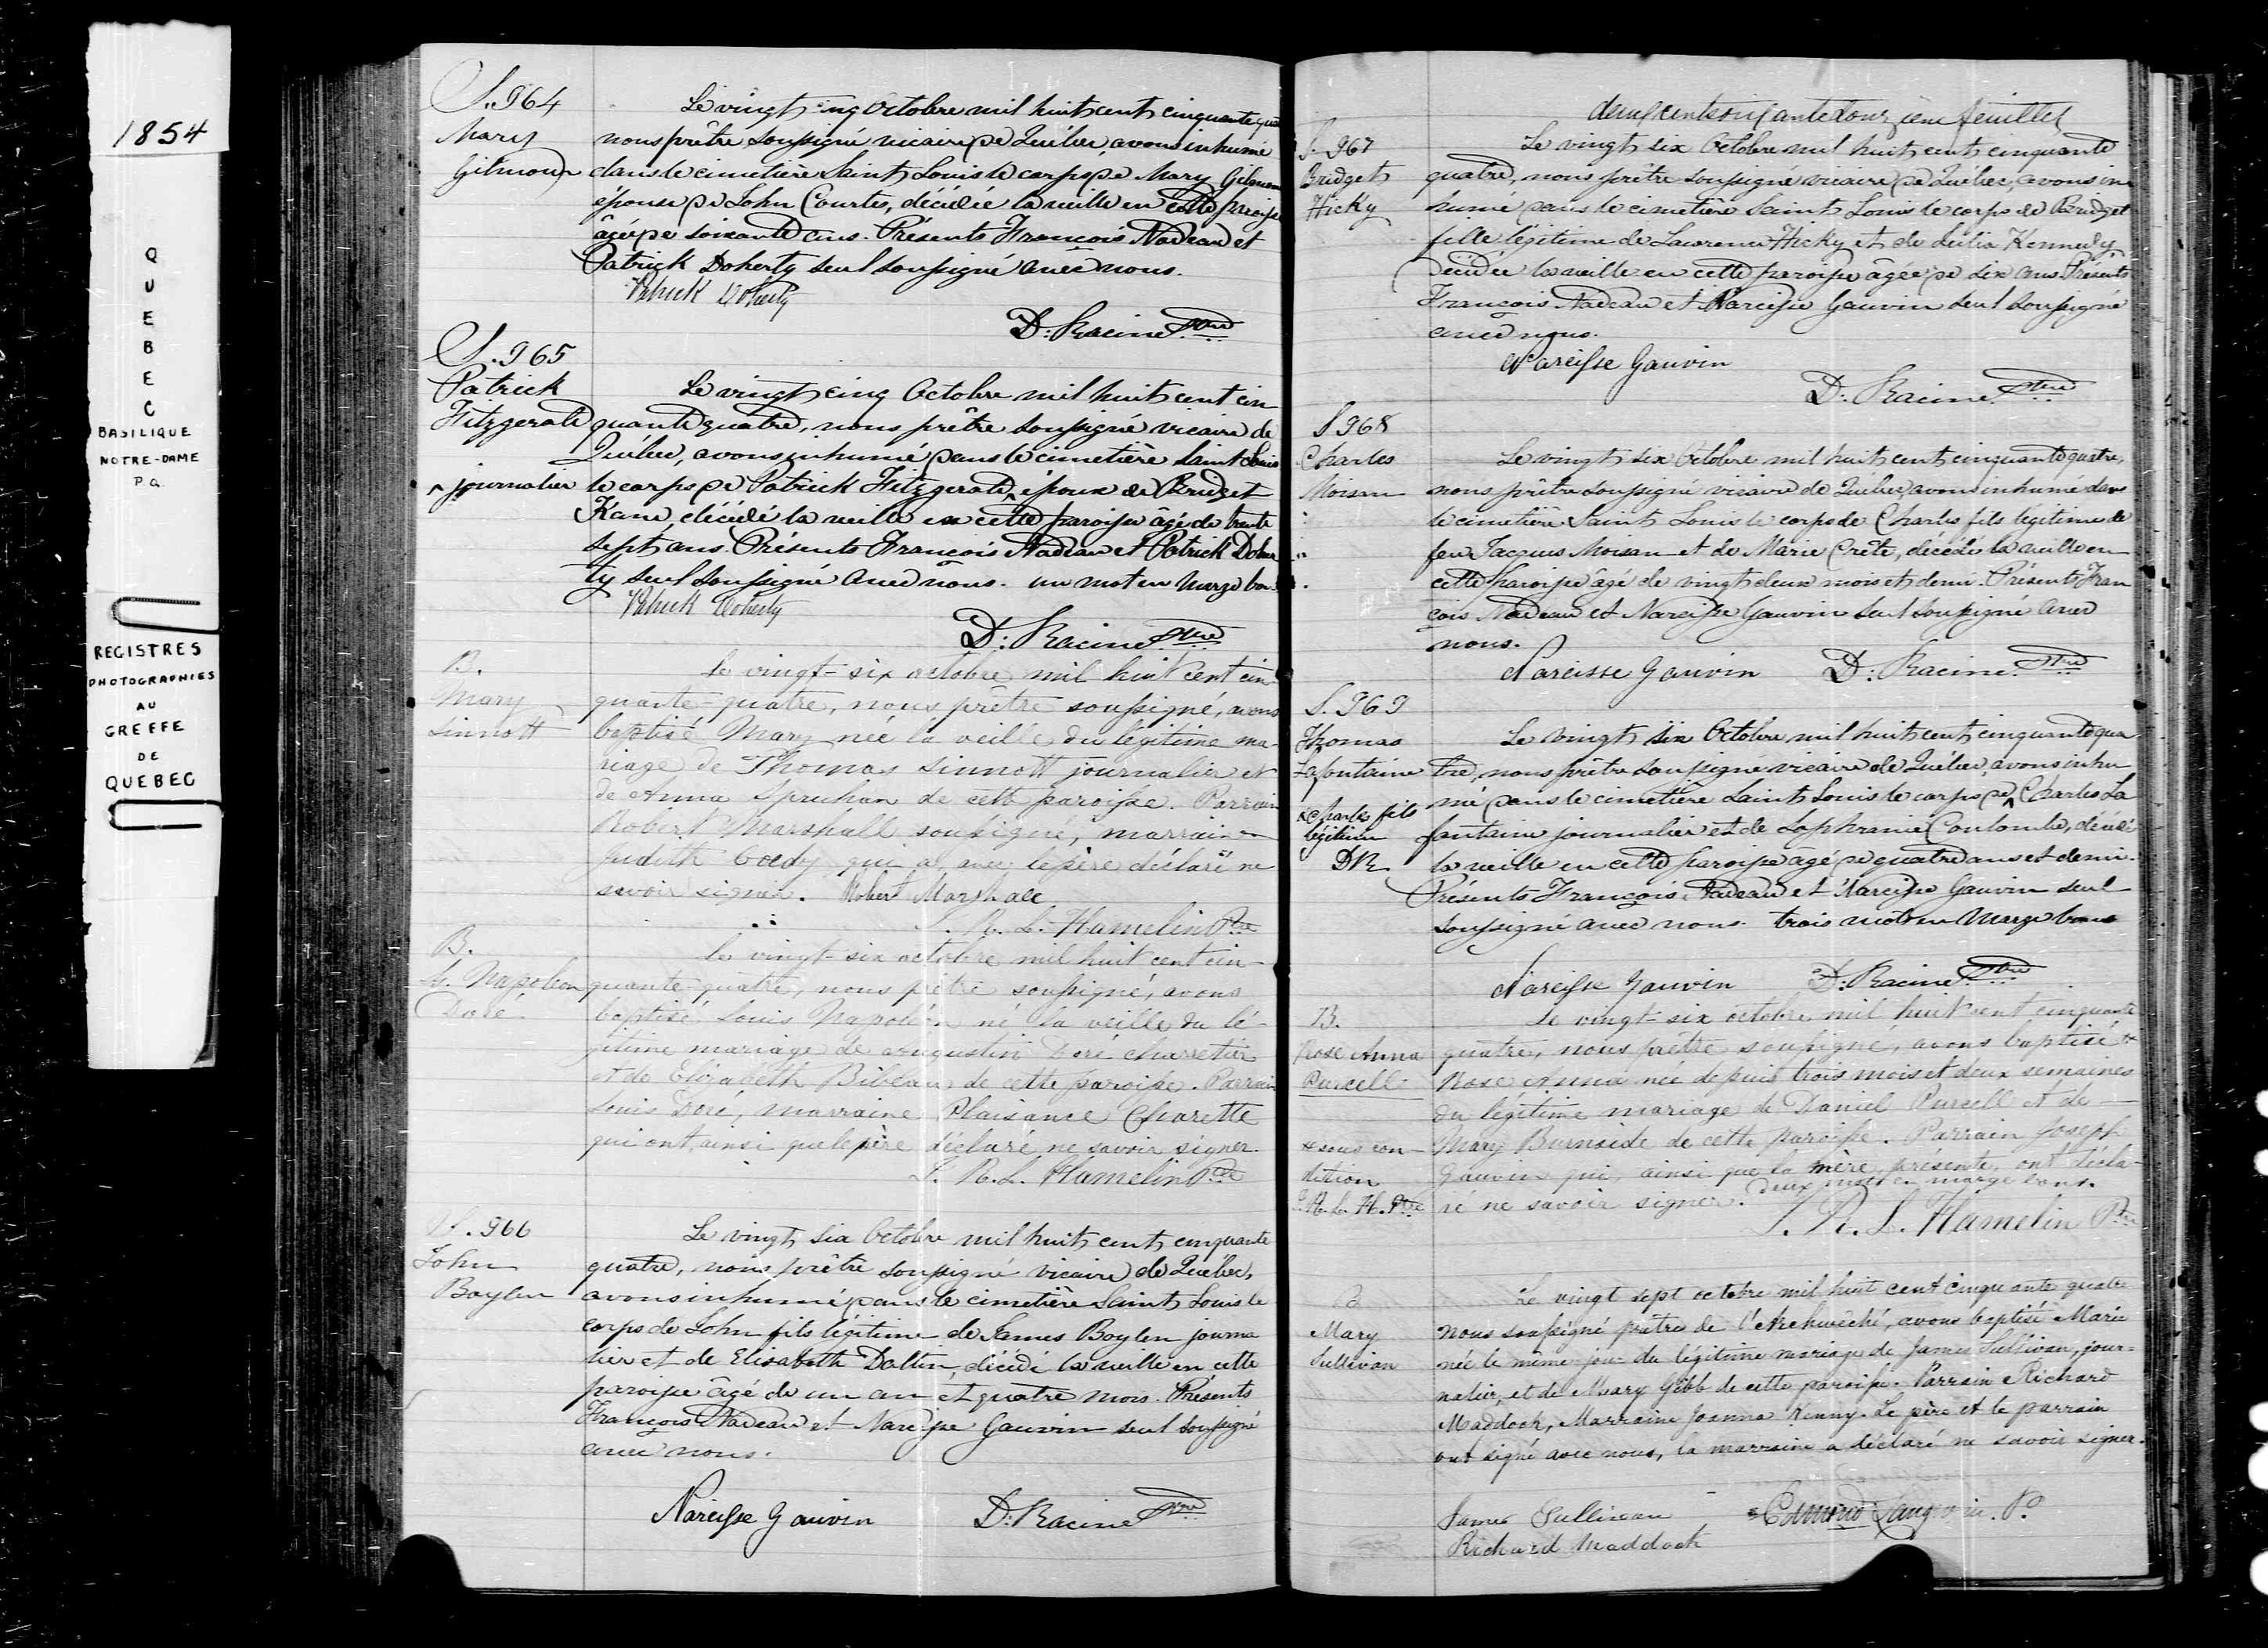 1854
QUEBEC
BASILIQUE
NOTRE-DAME
P.Q.
REGISTRES
PHOTOGRAPHIES
AU
GREFFE
DE
QUEBEC
S. 964
Mary
Gilmour
Le vingt cinq Octobre mil huit cent cinquante qua
nous prêtre soussigné vicaire de Québec, avons inhumé
dans le cimetière Saint Louis le corps de Mary Gilmour
épouse de John Courtes, décédée la veille en cette paroisse
âgée de soixante ans. Présents François Nadeau et
Patrick Doherty seul soussigné avec nous.
Patrick Doherty
D: Racine Ptre
S. 965
Patrick
Fitzgerald
^ journalier
Le vingt cinq Octobre mil huit cent cin
quante quatre, nous prêtre soussigné vicaire de
Québec, avons inhumé dans le cimetière Saint Louis
le corps de Patrick Fitzgerald ^ époux de Bridget
Kane, décédé la veille en cette paroisse âgé de trente
sept ans. Présents François Nadeau et Patrick Doher
ty seul soussigné avec nous. un mot en marge bon.
Patrick Doherty
D: Racine Ptre
B.
Mary
Sinnott
Le vingt-six octobre mil huit cent cin
quante-quatre, nous prêtre soussigné, avons
baptisé Mary née la veille du légitime ma-
riage de Thomas Sinnott journalier et
de Anna Spruhan de cette paroisse. Parrain
Robert Marshall soussigné, marraine
Judith qui a, avec le père déclaré ne
savoir signer. Robert Marshall
J. R. L. Hamelin Ptre
B.
Ls. Napoléon
Doré
Le vingt-six octobre mil huit cent cin-
quante-quatre, nous prêtre soussigné, avons
baptisé Louis Napoléon né la veille du lé-
gitime mariage de Augustin Doré charretier
et de Elizabeth Bibeau de cette paroisse. Parrain
Louis Doré, marraine Plaisance Charette
qui ont, ainsi que le père déclaré ne savoir signer.
J. R. L. Hamelin Ptre
S. 966
John
Boylen
Le vingt six Octobre mil huit cent cinquante
quatre, nous prêtre soussigné vicaire de Québec,
avons inhumé dans le cimetière Saint Louis le
corps de John fils légitime de James Boylen journa
lier et de Elisabeth Daltin, décédé la veille en cette
paroisse âgé de un an et quatre mois. Présents
François Nadeau et Narcisse Gauvin seul soussigné
avec nous.
Narcisse Gauvin D: Racine Ptre
deux cent soixante douzième feuillet
S. 967
Bridget
Hicky
Le vingt six Octobre mil huit cent cinquante
quatre, nous prêtre soussigné vicaire de Québec, avons in
humé dans le cimetière Saint Louis le corps de Bridget
fille légitime de Lawrence Hicky et de Kennedy
décédée la veille en cette paroisse âgée de dix ans. Présents
François Nadeau et Narcisse Gauvin seul soussigné
avec nous.
Narcisse Gauvin
D: Racine Ptre
S 968
Charles
Moisan
Le vingt six Octobre mil huit cent cinquante quatre,
nous prêtre soussigné vicaire de Québec, avons inhumé dans
le cimetière Saint Louis le corps de Charles fils légitime de
feu Jacques Moisan et de Marie Crête, décédé la veille en
cette paroisse âgé de vingt deux mois et demi. Présents Fran
çois Nadeau et Narcisse Gauvin seul soussigné avec
nous.
Narcisse Gauvin D: Racine Ptre
S. 969
Thomas
Lafontaine
x Charles fils
légitime
DR
Le vingt six Octobre mil huit cent cinquante qua
tre, nous prêtre soussigné vicaire de Québec, avons inhu
mé dans le cimetière Saint Louis le corps de ^ Charles La
fontaine journalier et de Sophranie Coulombe, décédé
la veille en cette paroisse âgé de quatre ans et demi.
Présents François Nadeau et Narcisse Gauvin seul
soussigné avec nous. trois mots en marge bons
Narcisse Gauvin D: Racine Ptre
B.
Rose Anna
Purcell
x sous con-
dition
J. R. L. H. Ptre
Le vingt-six octobre mil huit cent cinquante
quatre, nous prêtre soussigné, avons baptisé x
Rose Anna née depuis trois mois et deux semaines
du légitime mariage de Daniel Purcell et de
Mary Burnside de cette paroisse. Parrain Joseph
Gauvin qui, ainsi que la mère présente, ont décla-
ré ne savoir signer. Deux mots en marge bons.
J. R. L. Hamelin Ptre
B
Mary
Sullivan
Le vingt sept octobre mil huit cent cinquante quatre
nous soussigné prêtre de l'Archevêché, avons baptisé Marie
née le même jour du légitime mariage de James Sullivan, jour-
nalier, et de Mary Gibb de cette paroisse. Parrain Richard
Maddock, Marraine Joanna Kenny. Le père et le parrain
ont signé avec nous, la marraine a déclaré ne savoir signer.
James Sullivan Edmond Langevin. P.
Richard Maddock